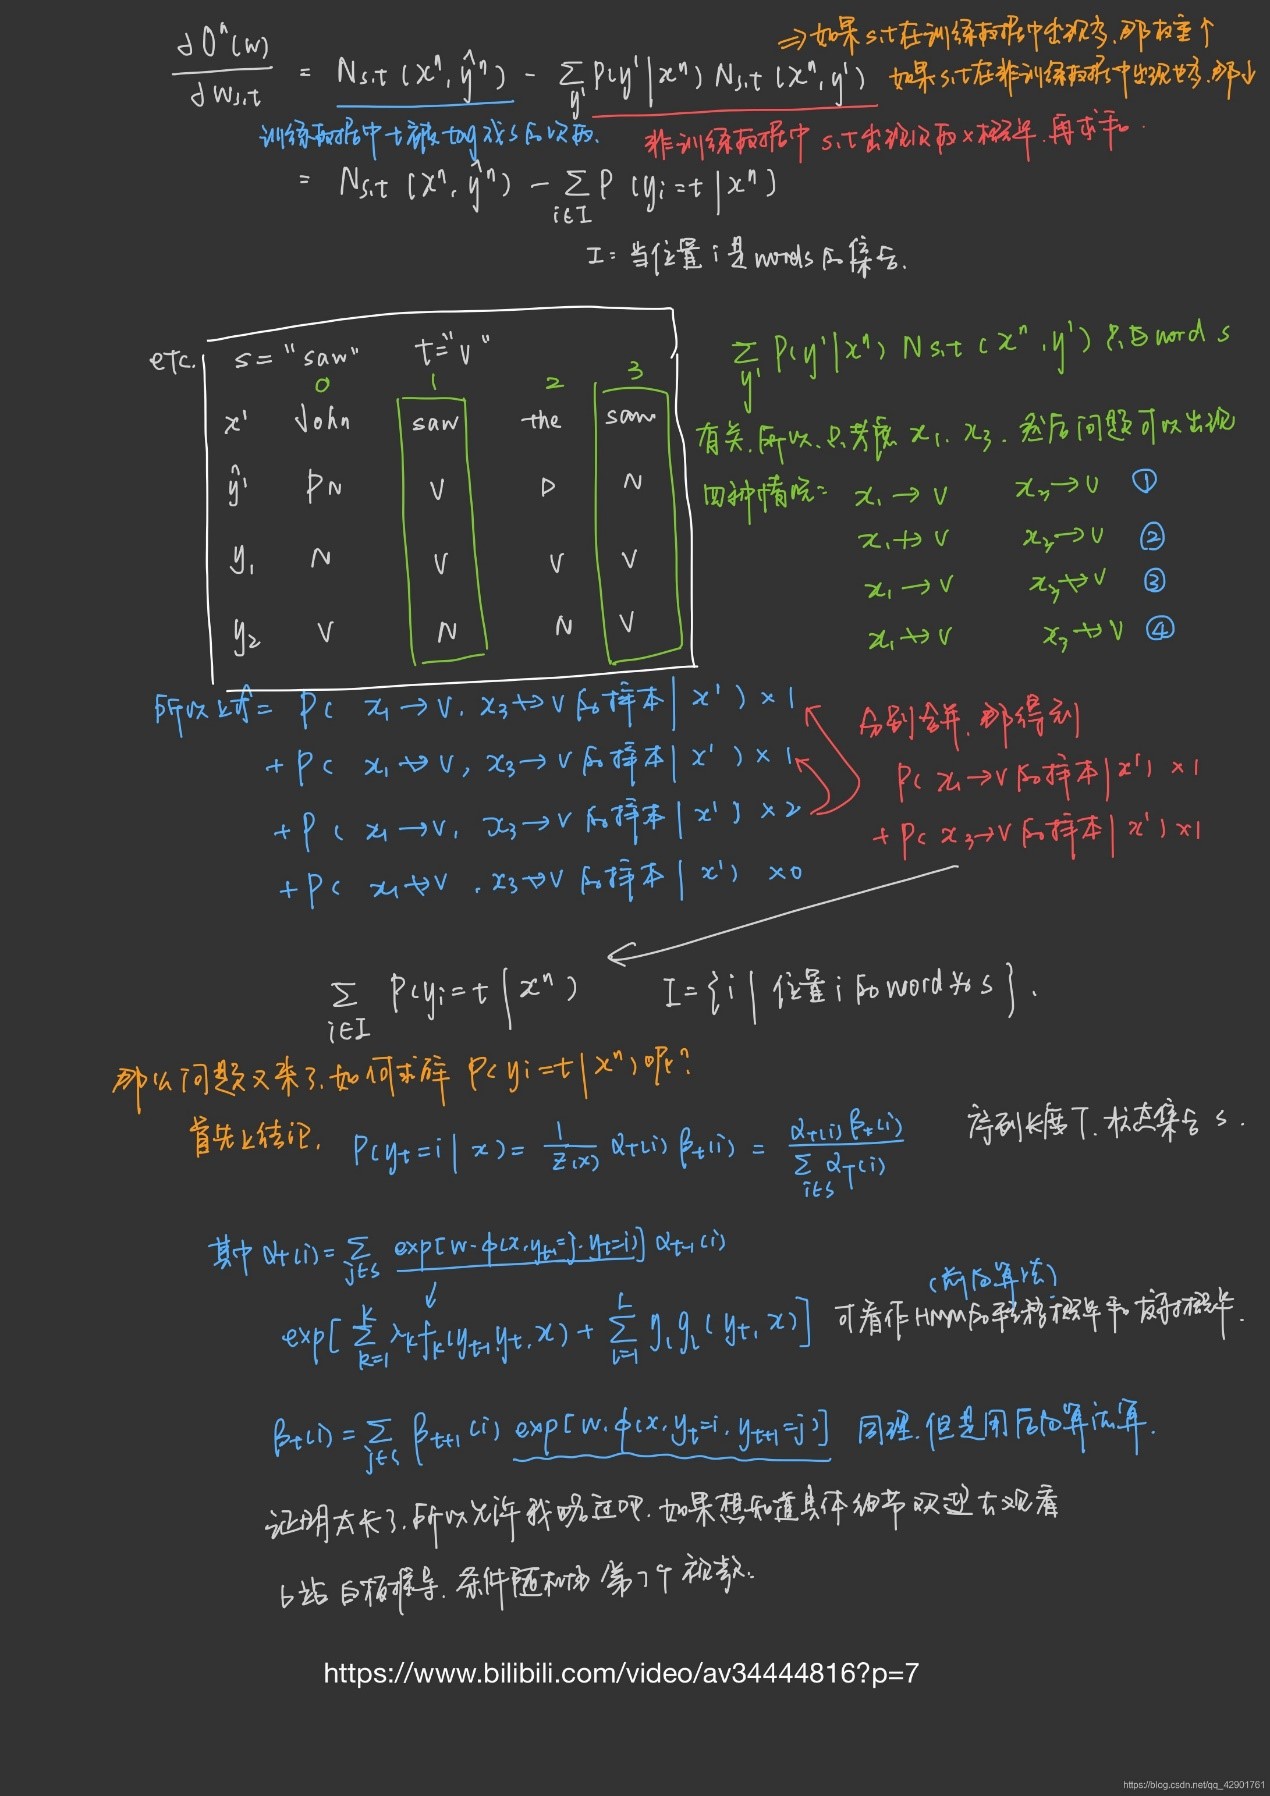 ∂O^n(w)/∂w_{s,t} = N_{s,t}(x^n, ŷ^n) - Σ_{y'} P(y'|x^n) N_{s,t}(x^n, y')
⇒如果s,t在训练数据中出现多,那权重↑
如果s,t在非训练数据中出现也多,那↓
训练数据中t被tag成s的次数.
非训练数据中 s,t出现次数×概率,再求和.
= N_{s,t}(x^n, ŷ^n) - Σ_{i∈I} P(y_i=t|x^n)
I=当位置i是words的集合.
etc. s="saw" t="V"
0 1 2 3
x' John saw the saw
ŷ' PN V D N
y_1 N V V V
y_2 V N N V
Σ_{y'} P(y'|x^n) N_{s,t}(x^n, y') 只与word s
有关,所以,只考虑 x_1, x_3. 然后问题可以出现
四种情况: x_1→V x_3→V ①
x_1↛V x_3→V ②
x_1→V x_3↛V ③
x_1↛V x_3↛V ④
所以上式= P( x_1→V, x_3↛V的样本|x')×1
+P( x_1↛V, x_3→V的样本|x')×1
+P( x_1→V, x_3→V的样本|x')×2
+P( x_1↛V, x_3↛V的样本|x')×0
分别合并,那得到
P(x_1→V的样本|x')×1
+P(x_3→V的样本|x')×1
Σ_{i∈I} P(y_i=t|x^n) I={i|位置i的word为s}.
那么问题又来了,如何求解 P(y_i=t|x^n)呢?
首先上结论, P(y_t=i|x)= 1/Z(x) α_t(i) β_t(i) = α_t(i) β_t(i) / Σ_{i∈S} α_T(i)
序列长度T,状态集合S.
其中 α_t(i)=Σ_{j∈S} exp[w·φ(x,y_{t-1}=j,y_t=i)] α_{t-1}(i)
(前向算法)
exp[Σ_{k=1}^{K} λ_k f_k(y_{t-1},y_t,x)+Σ_{l=1}^{L} η_l g_l(y_t,x)] 可看作HMM的转移概率和发射概率.
β_t(i)=Σ_{j∈S} β_{t+1}(i) exp[w·φ(x,y_t=i,y_{t+1}=j)] 同理,但是用后向算法算.
证明太长了,所以允许我略过吧,如果想知道具体细节欢迎去观看
b站 白板推导,条件随机场 第7个视频.
https://www.bilibili.com/video/av34444816?p=7
https://blog.csdn.net/qq_42901761